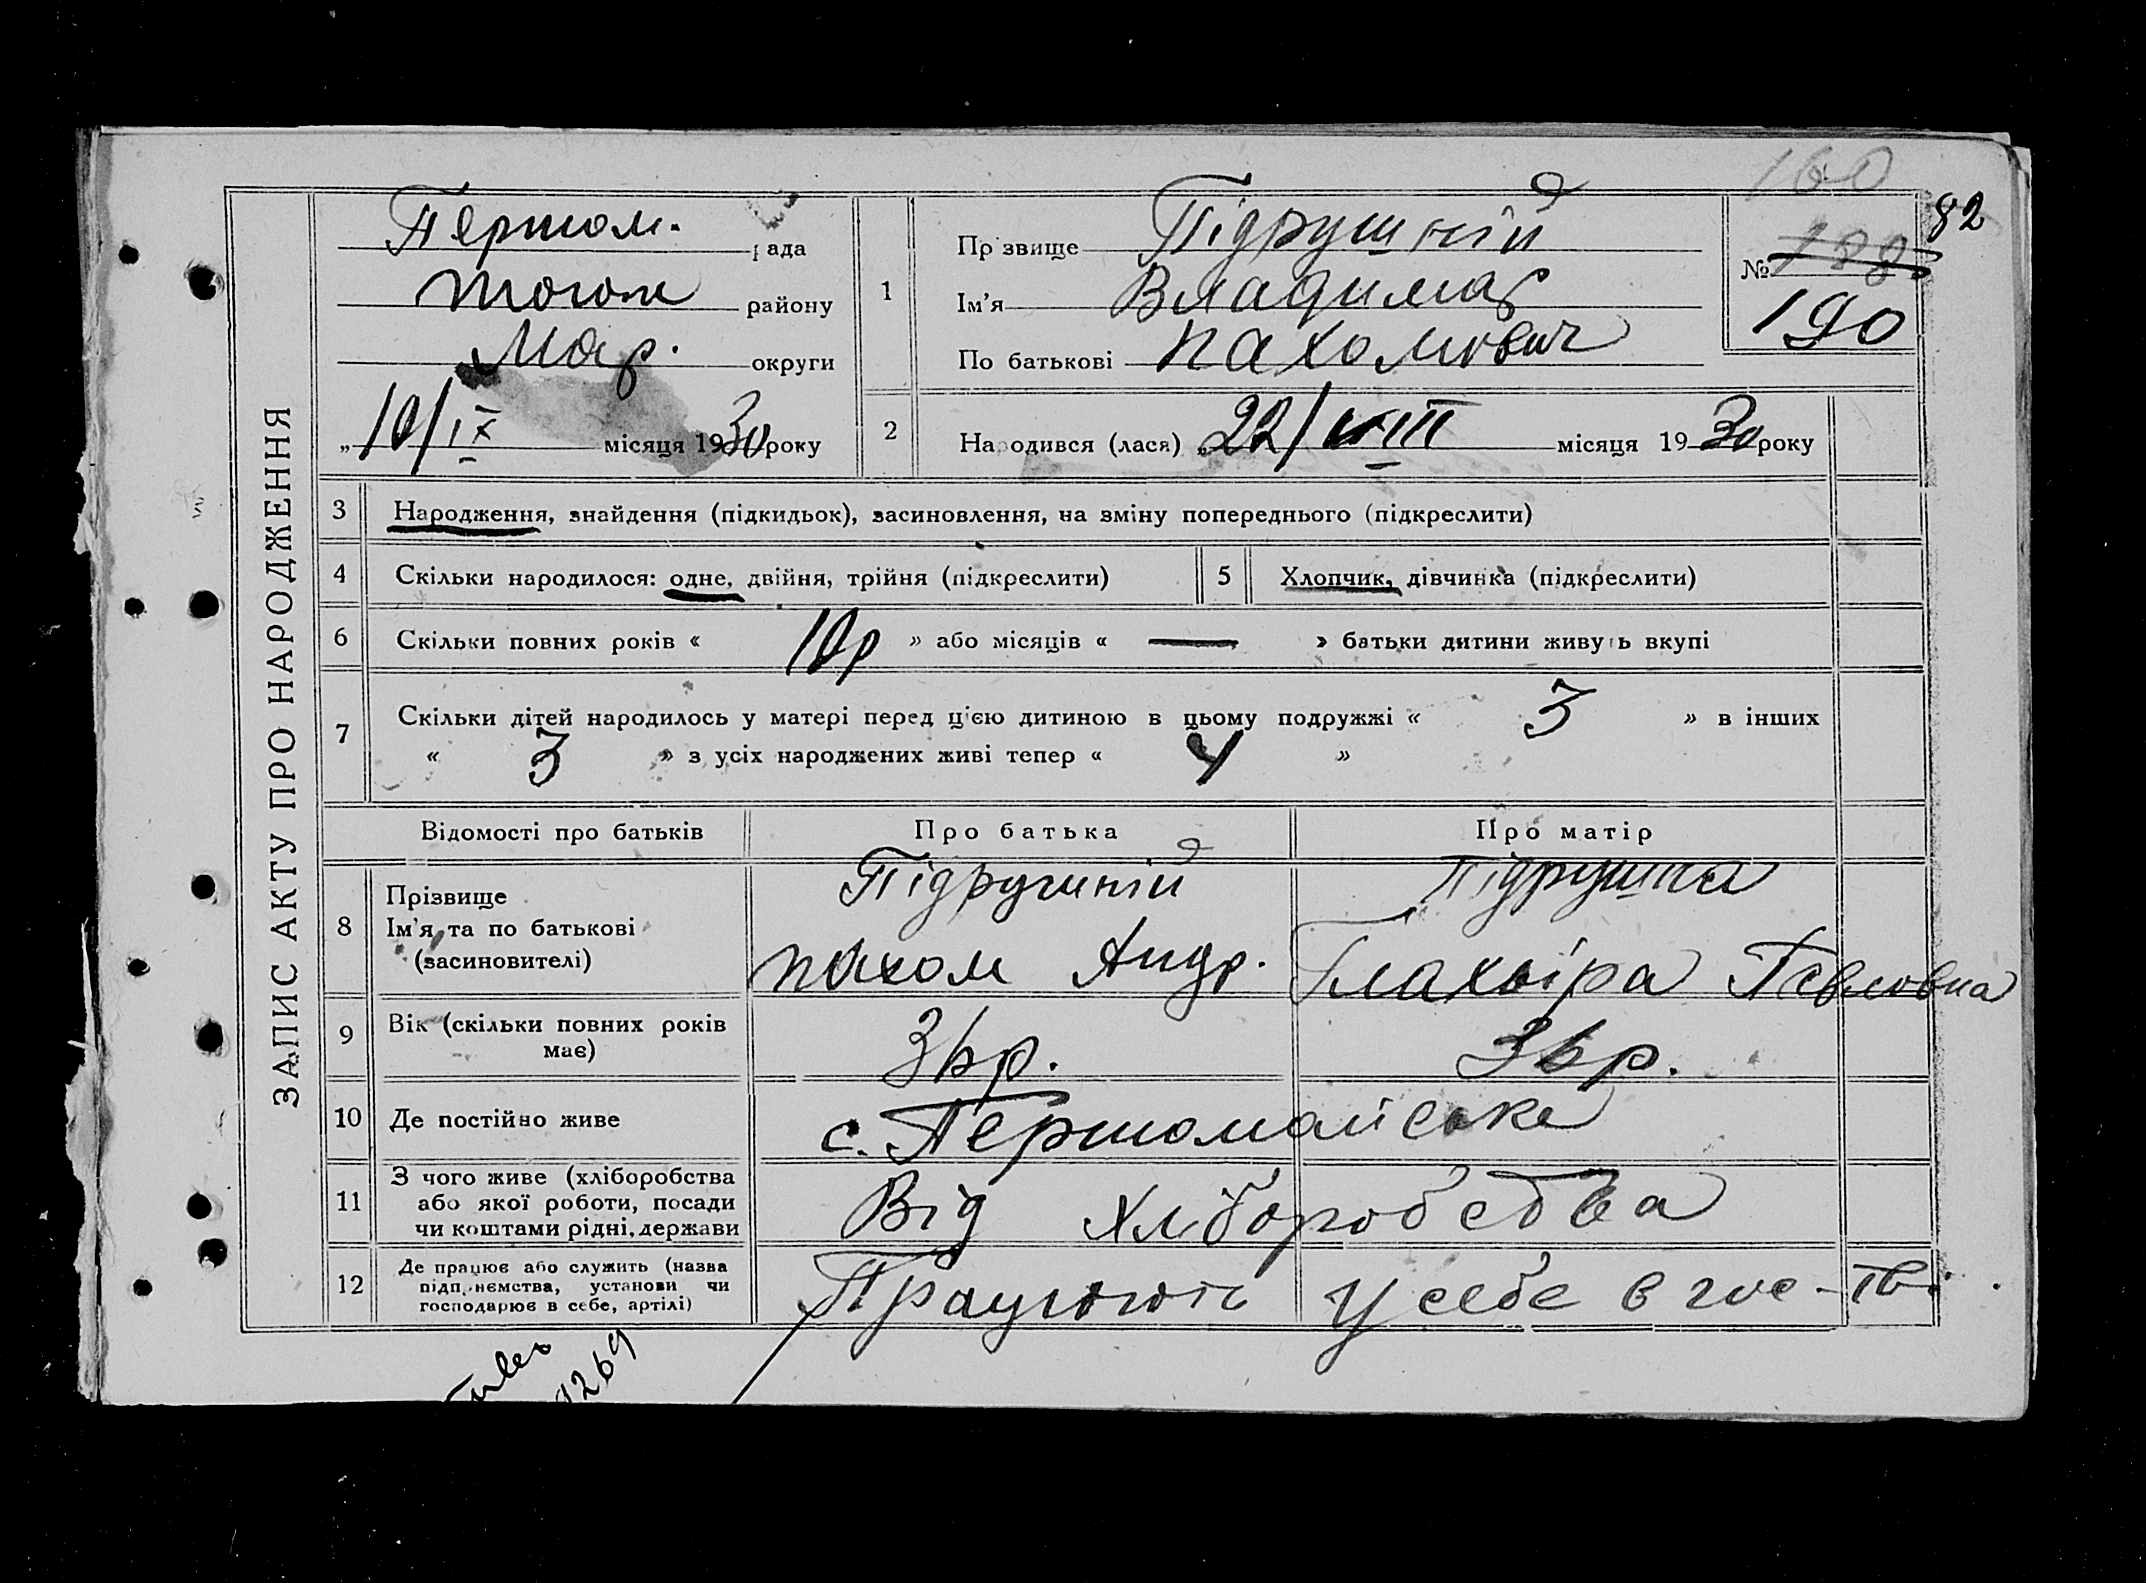 160
82
ЗАПИС АКТУ ПРО НАРОДЖЕННЯ
Першом. рада
району
Мар. округи
„10/IX місяця 1930 року
1
Прізвище Підрушній
Ім'я Владимар
По батькові Пахомович
№ 188
190
2
Народився (лася) „22/VIII місяця 1930 року
3 Народження, знайдення (підкидьок), засиновлення, на зміну попереднього (підкреслити)
4 Скільки народилося: одне, двійня, трійня (підкреслити)
5 Хлопчик, дівчинка (підкреслити)
6 Скільки повних років « 10р » або місяців « — » батьки дитини живуть вкупі
7 Скільки дітей народилось у матері перед цією дитиною в цьому подружжі « 3 » в інших
« 3 » з усіх народжених живі тепер « 4 »
Відомості про батьків Про батька Про матір
8 Прізвище
Ім'я та по батькові
(засиновителі)
Підрушній
Пахом Андр.
Підрушна
Павловна
9 Вік (скільки повних років
має)
36р. 36р.
10 Де постійно живе с. Першомайське
11 З чого живе (хліборобства
або якої роботи, посади
чи коштами рідні, держави
Від хліборобства
12 Де працює або служить (назва
підприємства, установи чи
господарює в себе, артілі)
Працюють у себе в гос-тві.